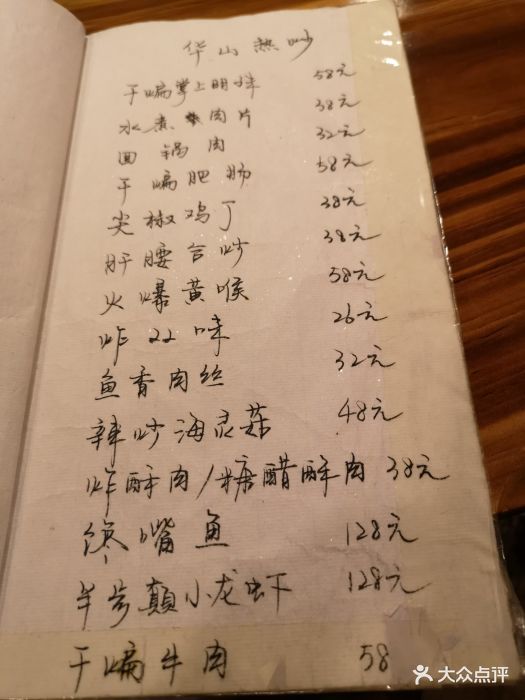 华山热吵
干煸掌上明珠 58元
水煮肉片 38元
回锅肉 32元
干煸肥肠 58元
尖椒鸡丁 38元
肝腰合炒 38元
火爆黄喉 58元
炸双味 26元
鱼香肉丝 32元
辣炒海灵菇 48元
炸酥肉/糖醋酥肉 38元
馋嘴鱼 128元
羊芳颠小龙虾 128元
干煸牛肉 58
大众点评